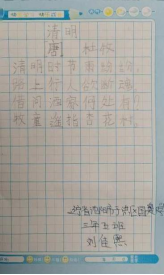 清明
唐 杜牧
清明时节雨纷纷
路上行人欲断魂
借问酒家何处有
牧童遥指杏花村
三年五班